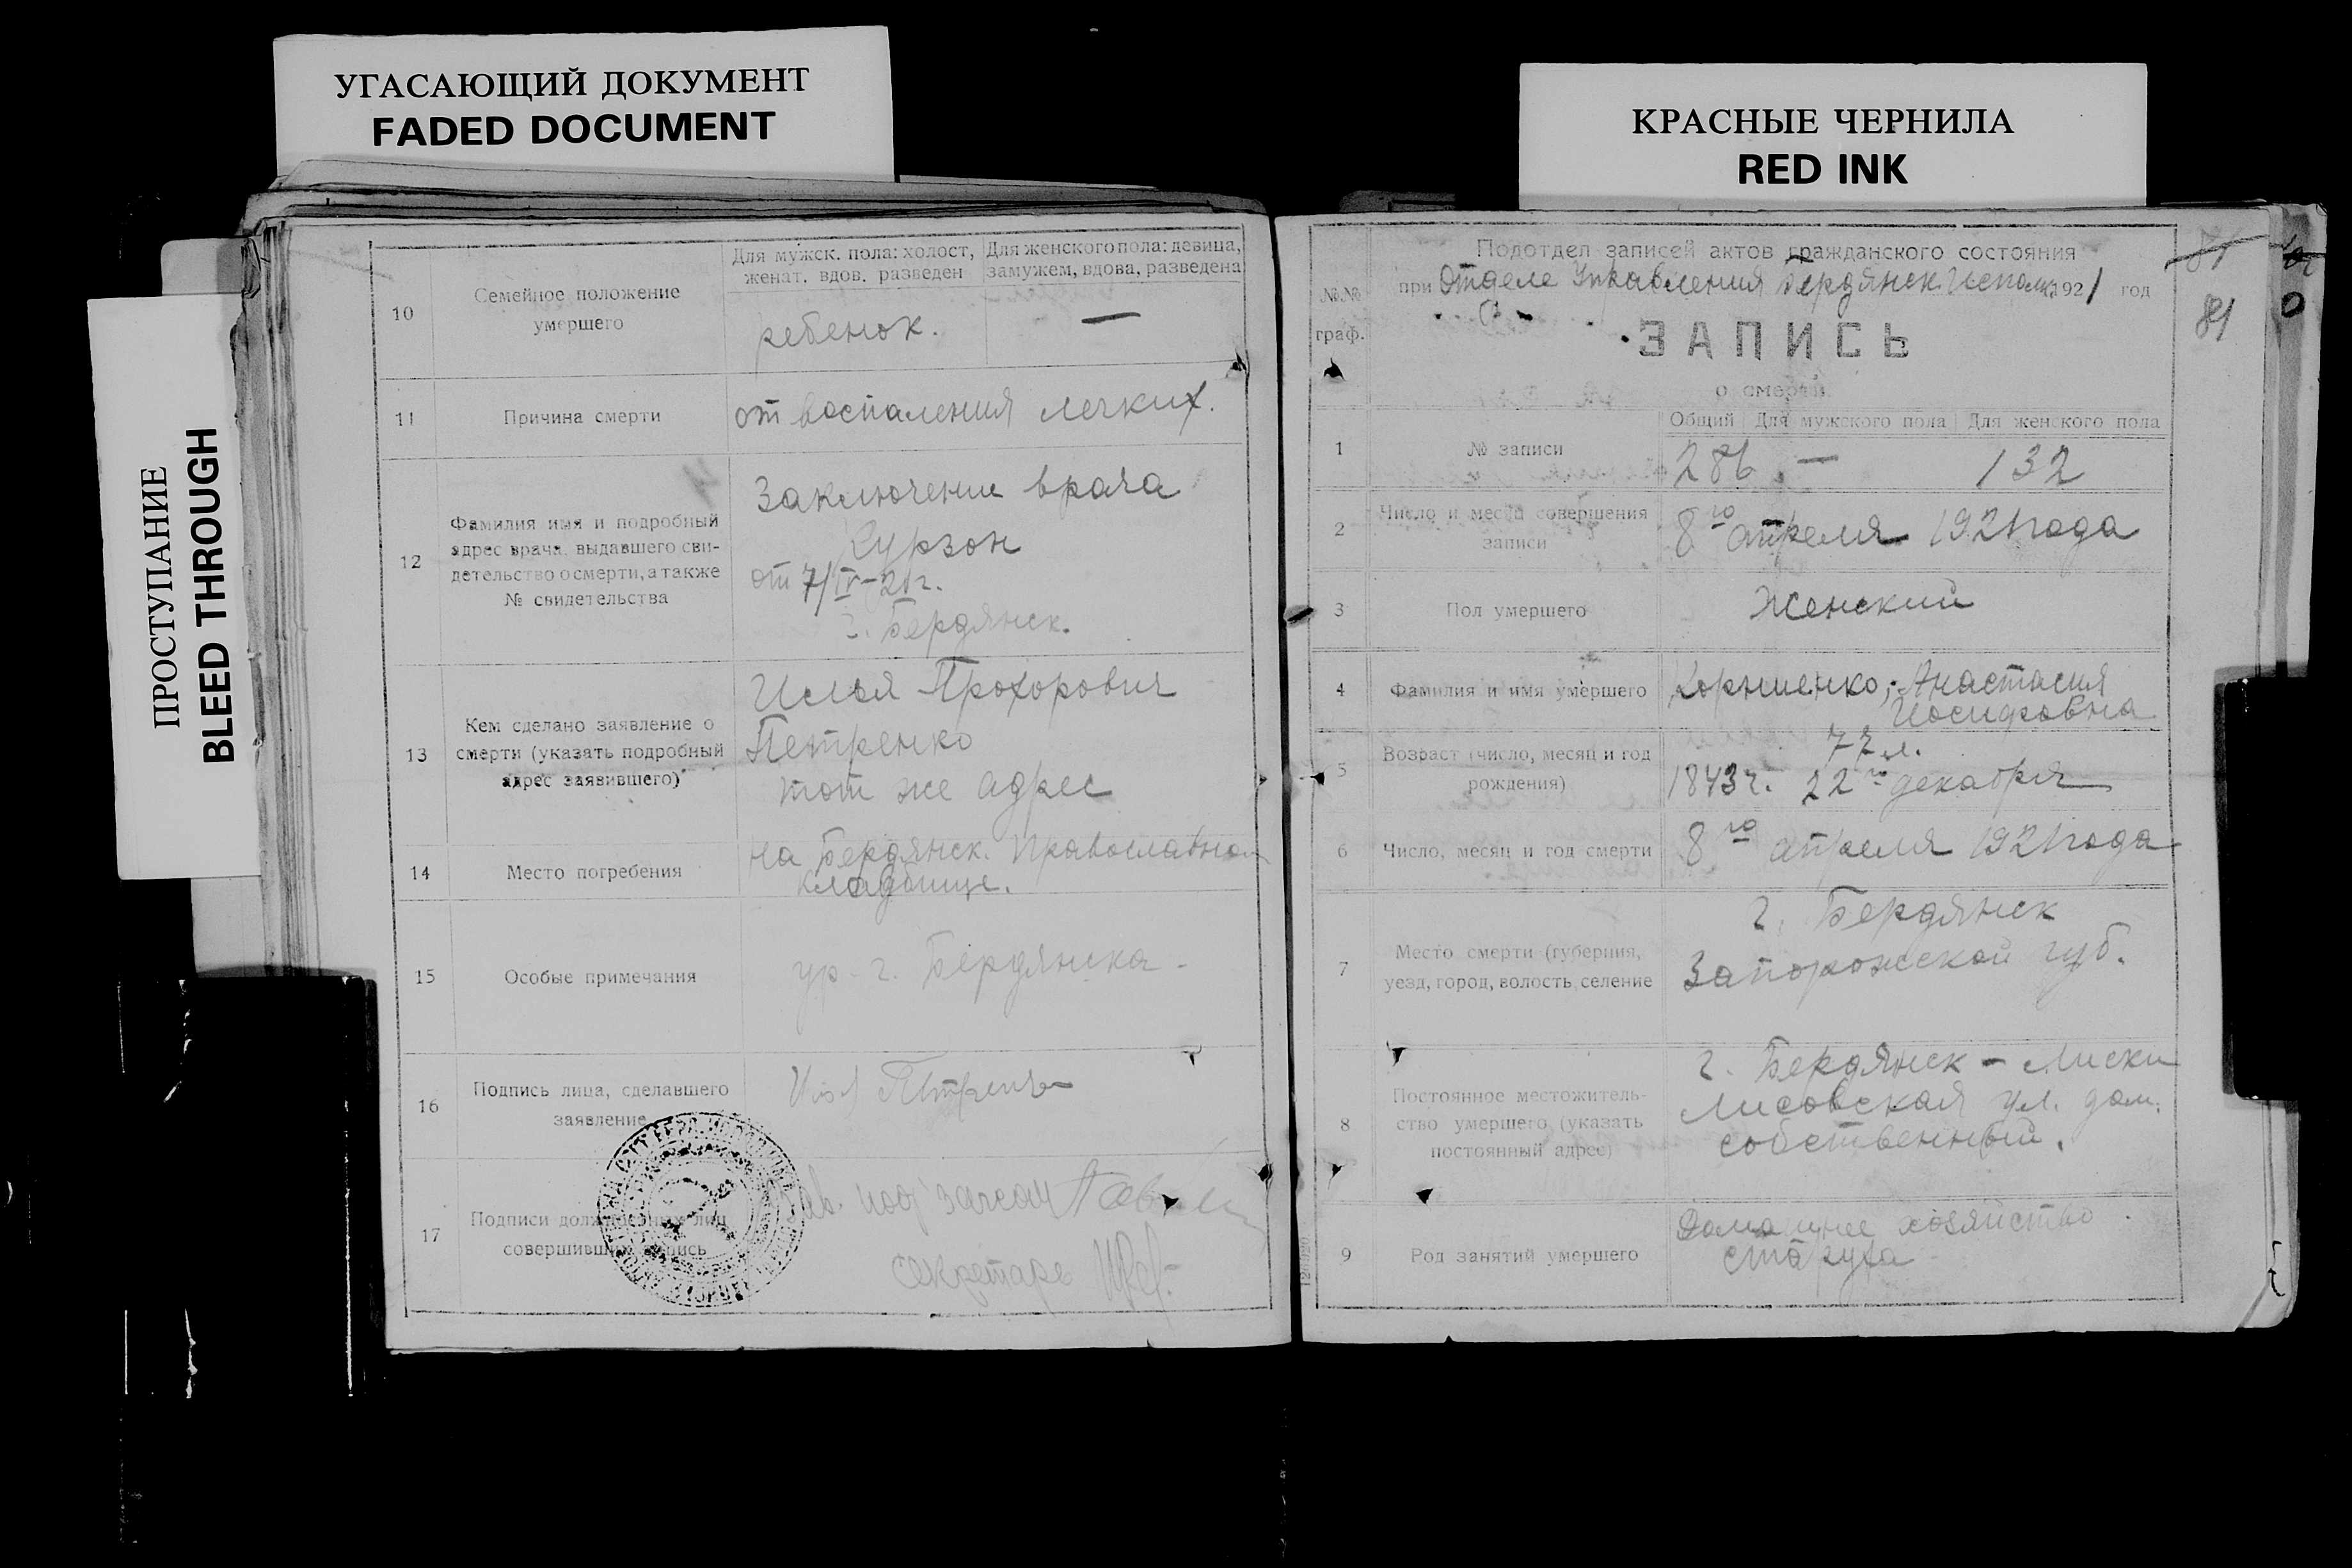 УГАСАЮЩИЙ ДОКУМЕНТ
FADED DOCUMENT
КРАСНЫЕ ЧЕРНИЛА
RED INK
ПРОСТУПАНИЕ
BLEED THROUGH
10
Семейное положение
умершего
Для мужск. пола: холост,
женат. вдов. разведен
Для женского пола: девица,
замужем, вдова, разведена
ребенок.
—
11
Причина смерти
от воспаления легких.
12
Фамилия имя и подробный
адрес врача, выдавшего сви-
детельство о смерти, а также
№ свидетельства
Заключение врача
Курзон
от 7/IV-21г.
г. Бердянск.
13
Кем сделано заявление о
смерти (указать подробный
адрес заявившего)
Илья Прохорович
Петренко
тот же адрес
14
Место погребения
на Бердянск. Православном
кладбище.
15
Особые примечания
ур. г. Бердянска.
16
Подпись лица, сделавшего
заявление
Петренко
17
Подписи должностных лиц
совершивших запись
Зав. под
секретарь
Подотдел записей актов гражданского состояния
при Отделе Управления Бердянск. Исполк. 1921 год
№№
граф.
ЗАПИСЬ
о смерти
81
1
№ записи
Общий Для мужского пола Для женского пола
286 — 132
2
Число и место совершения
записи
8го апреля 1921 года
3
Пол умершего
Женский
4
Фамилия и имя умершего
Корниенко, Анастасия
Иосифовна
5
Возраст (число, месяц и год
рождения)
77 л.
1843 г. 22го декабря
6
Число, месяц и год смерти
8го апреля 1921 года
7
Место смерти (губерния,
уезд, город, волость, селение
г. Бердянск
Запорожской губ.
8
Постоянное местожитель-
ство умершего (указать
постоянный адрес)
г. Бердянск - Лиски
Лисовская ул. дом.
собственный.
9
Род занятий умершего
Домашнее хозяйство
старуха